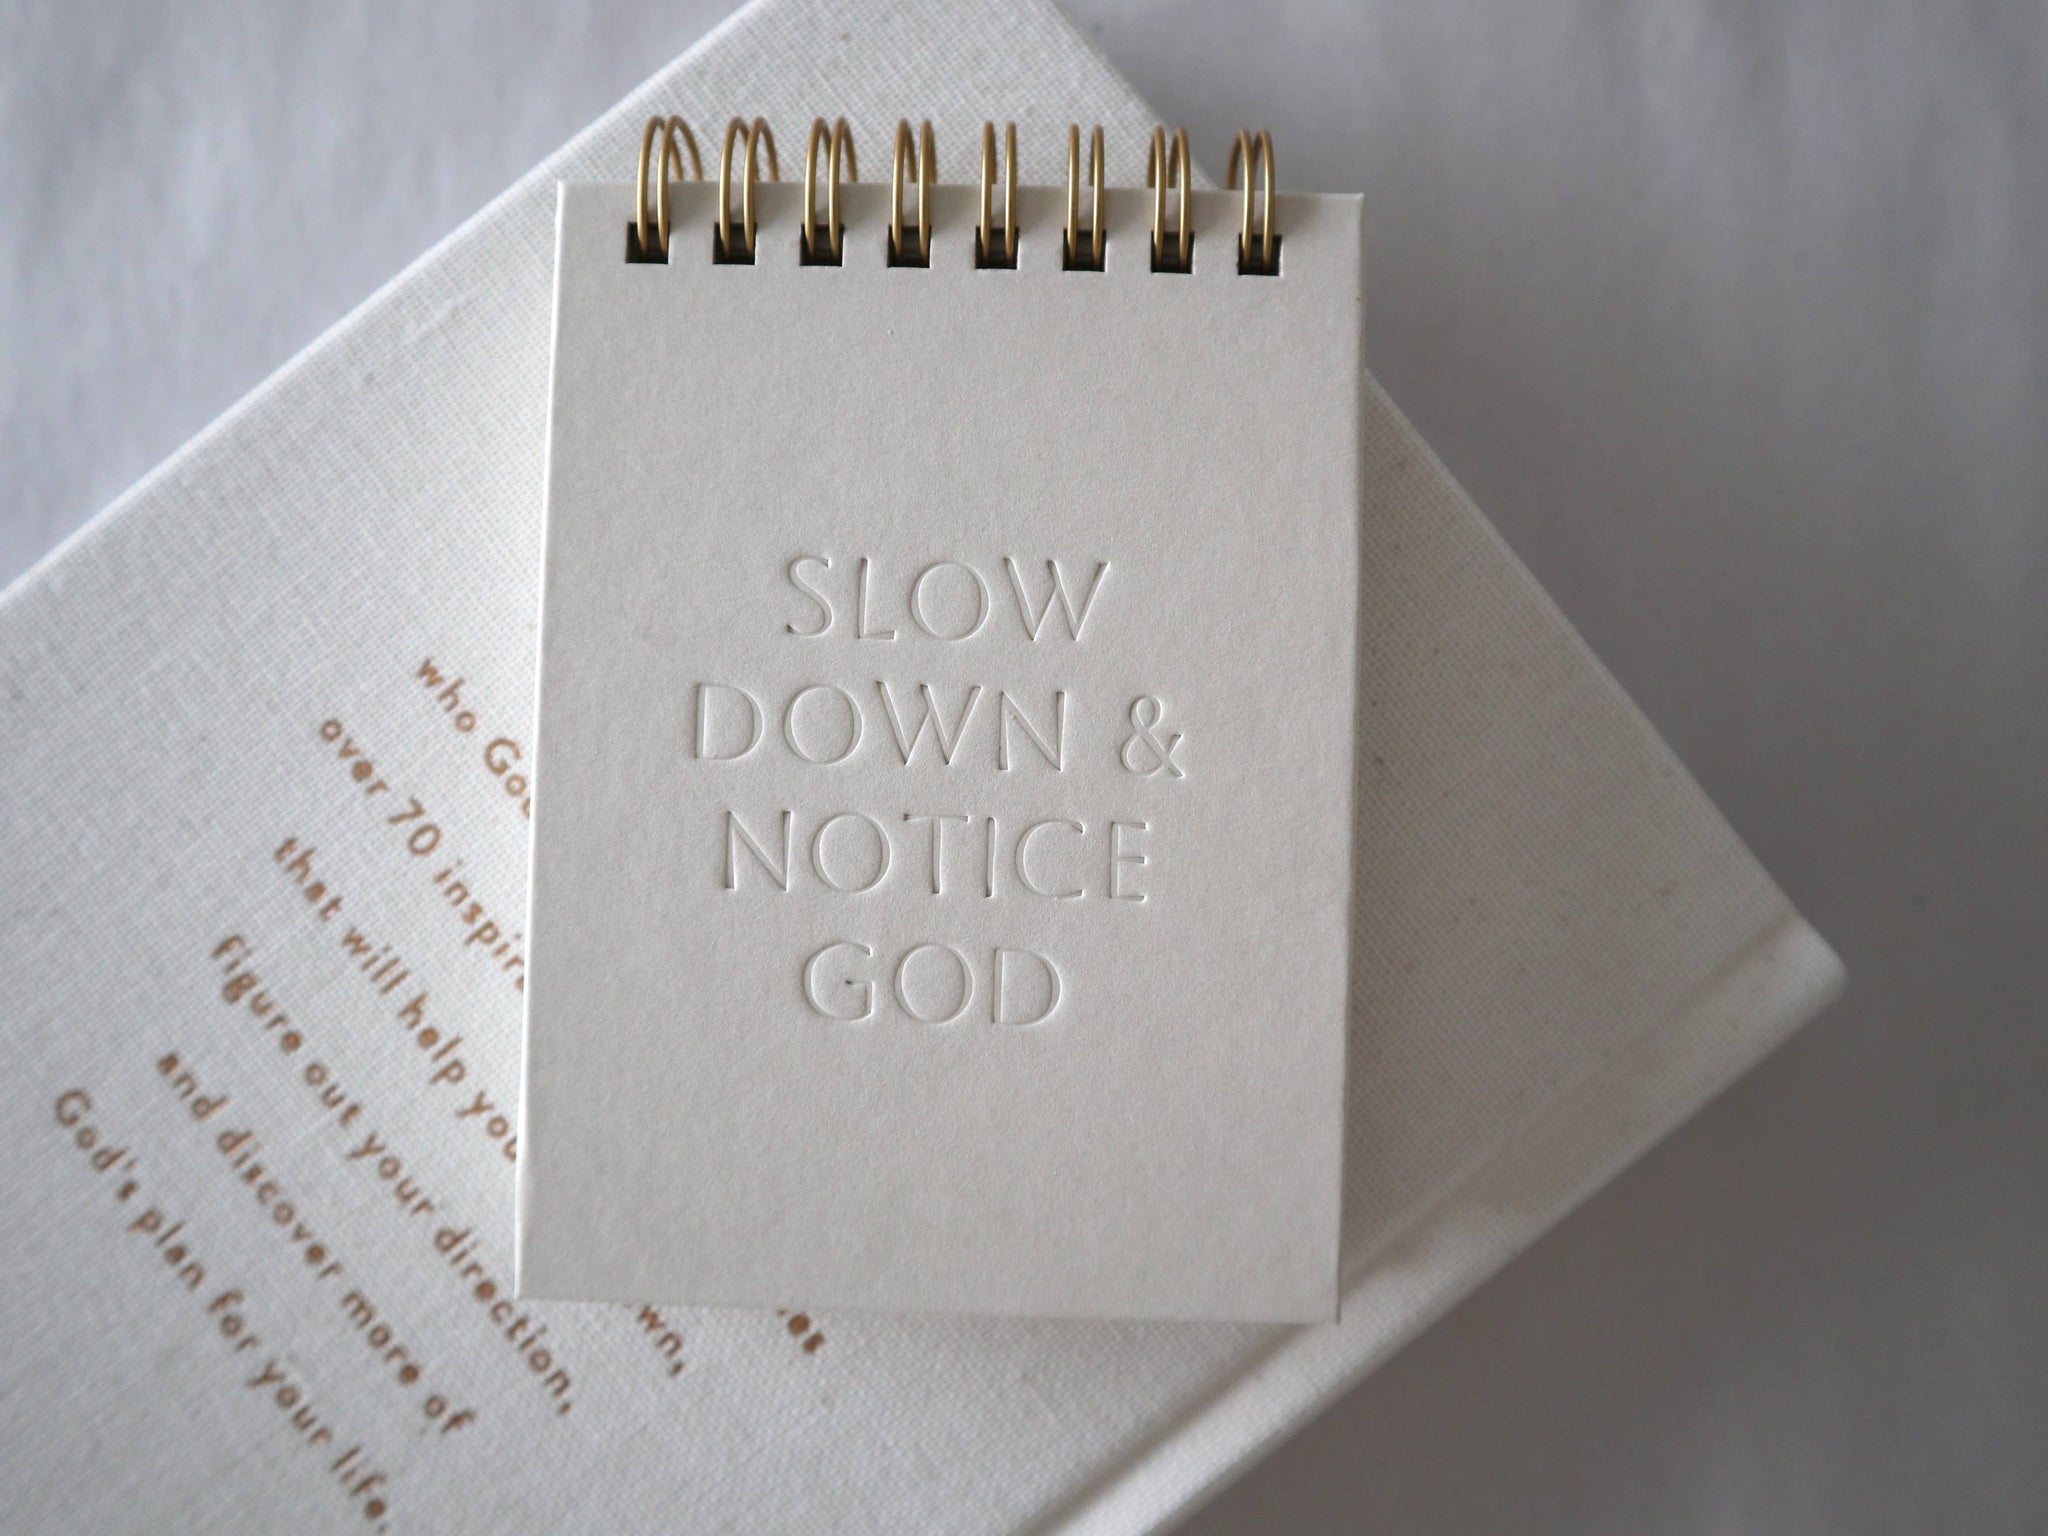 SLOW
DOWN &
NOTICE
GOD
who
over 70
that will help
figure out your direction,
and discover more of
God's plan for your life.